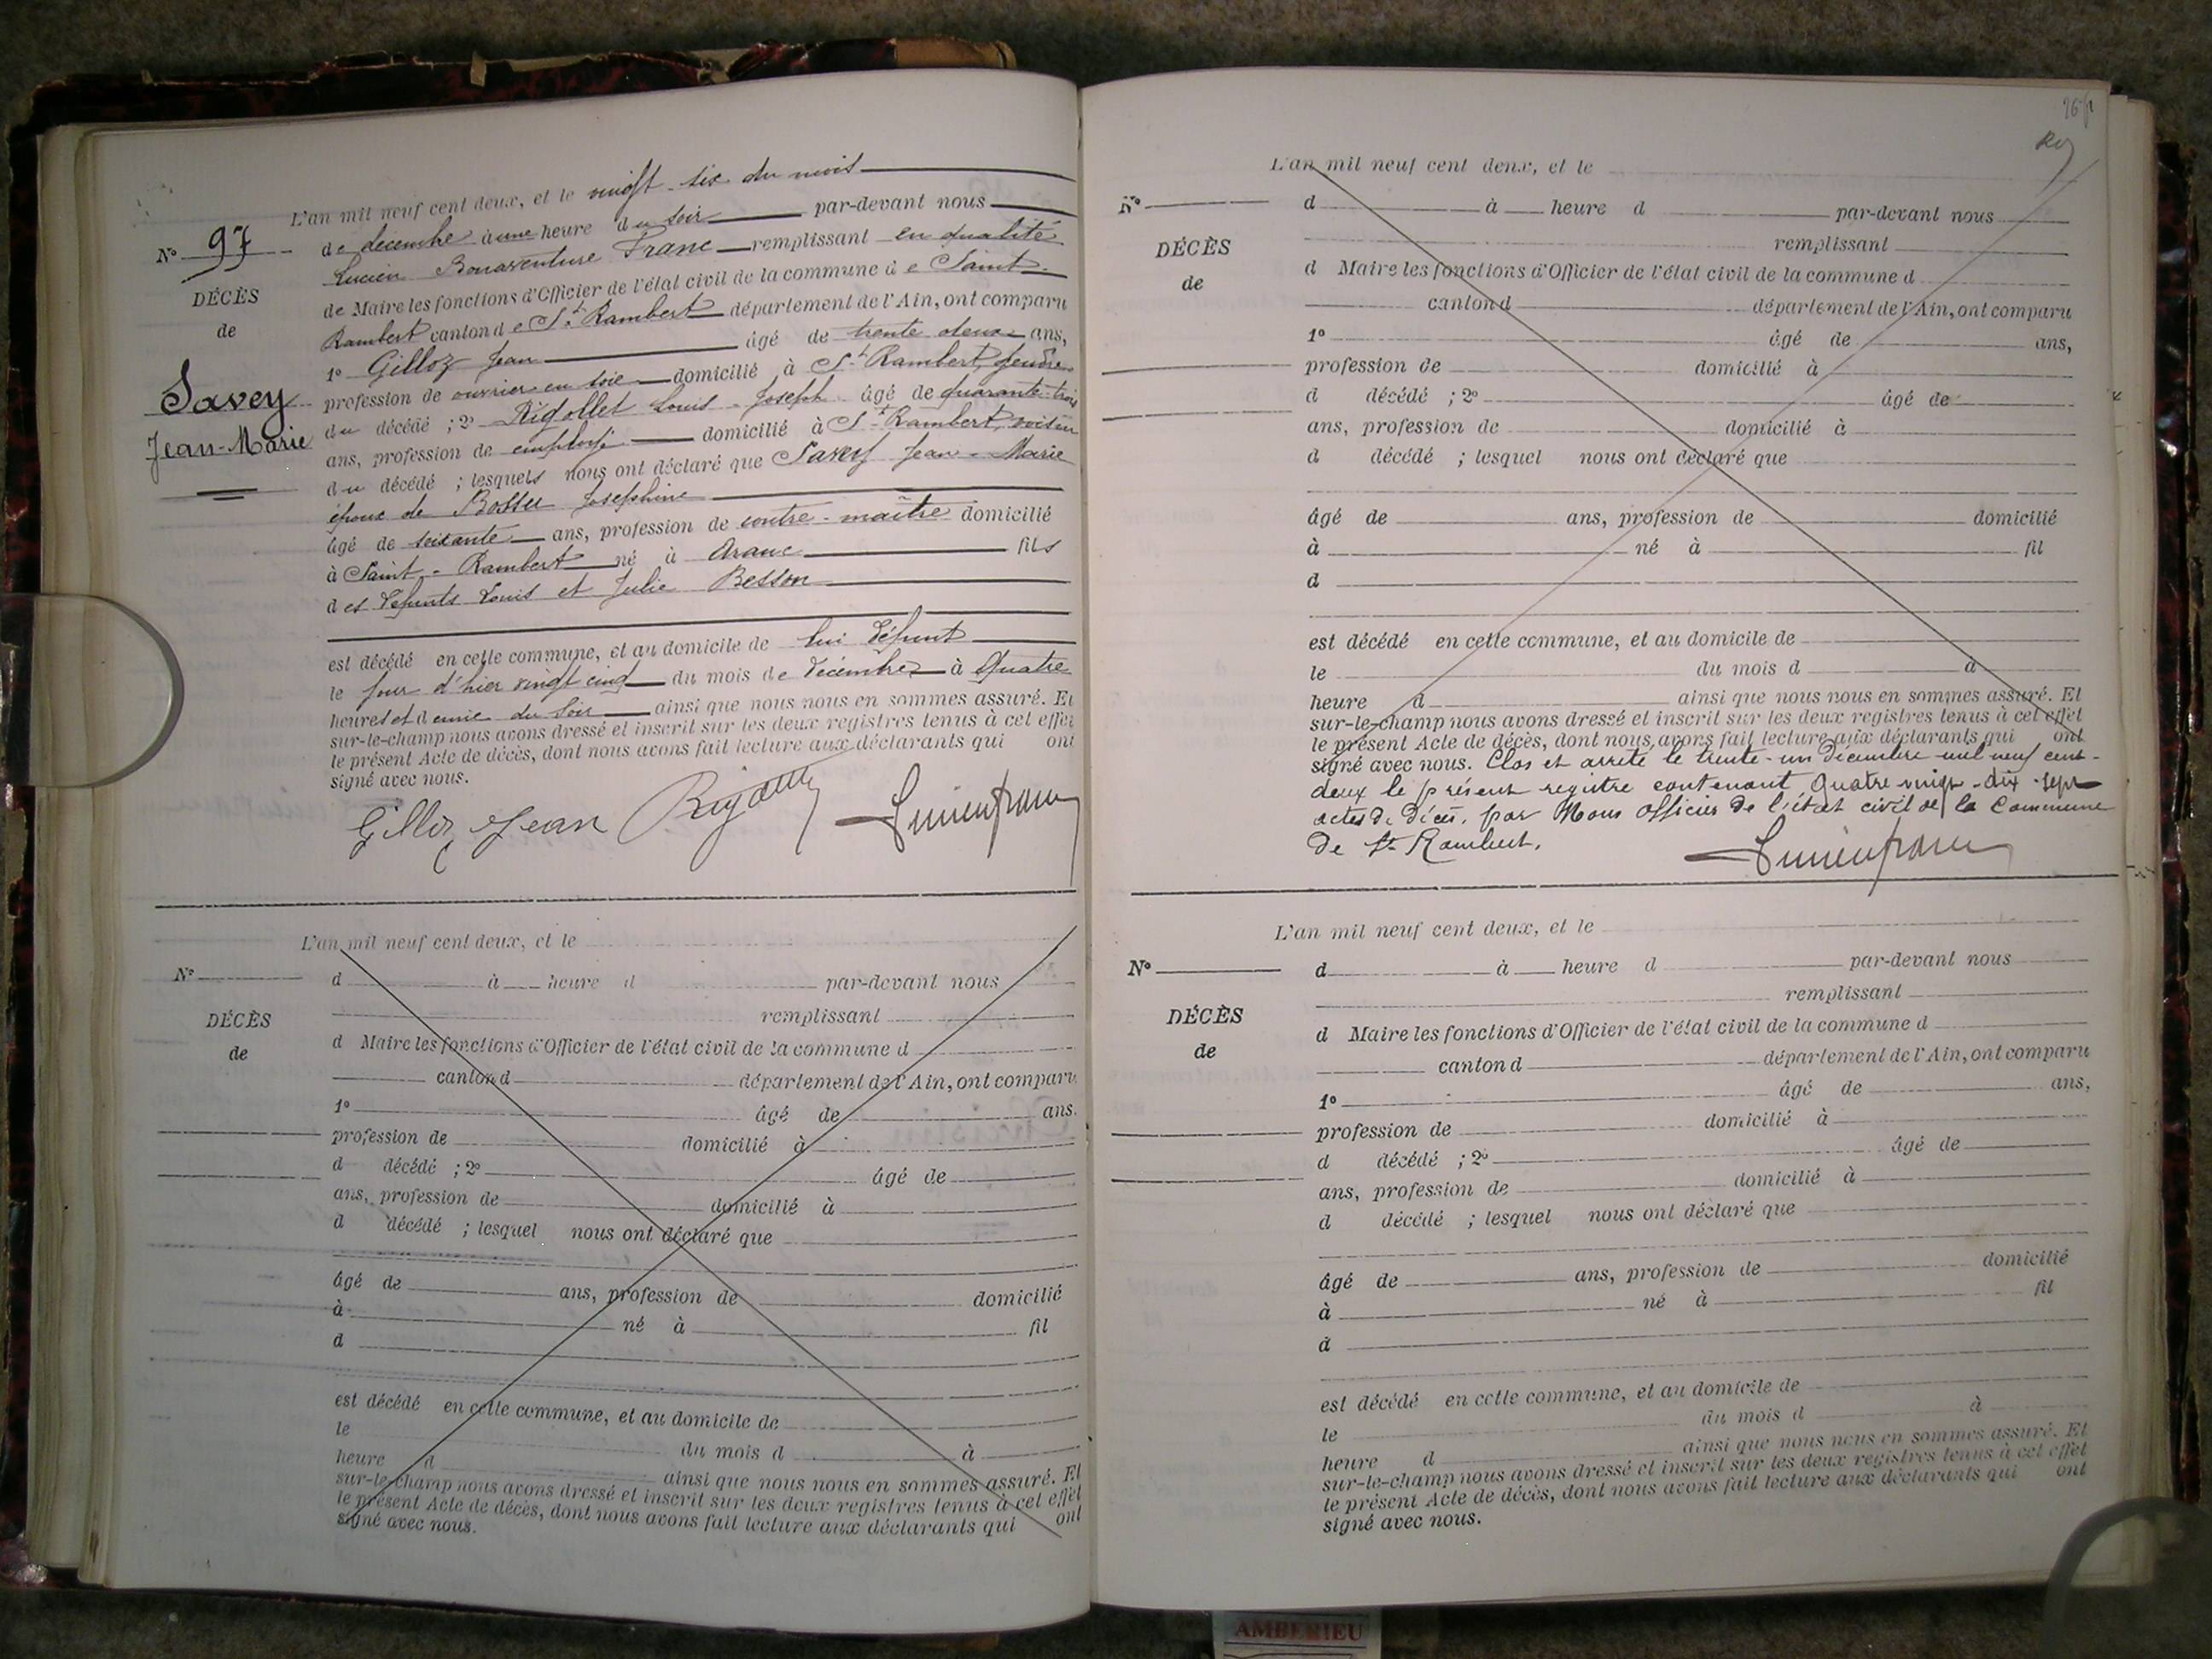 L'an mil neuf cent deux, et le vingt-six du mois
N° 97
de décembre à une heure du soir par-devant nous
Lucien Bonaventure Franc remplissant en qualité
DÉCÈS
de Maire les fonctions d'Officier de l'état civil de la commune de Saint-
de
Rambert canton de St Rambert département de l'Ain, ont comparu
1° Gilloz Jean âgé de trente deux ans,
Savey
Jean-Marie
profession de ouvrier en soie domicilié à St Rambert, gendre
du décédé ; 2° Rigollet Louis-Joseph âgé de quarante-trois
ans, profession de employé domicilié à St-Rambert, voisin
du décédé ; lesquels nous ont déclaré que Savey Jean-Marie
époux de Bossu Joséphine
âgé de soixante ans, profession de contre-maître domicilié
à Saint-Rambert né à Aranc fils
des défunts Louis et Julie Besson
est décédé en cette commune, et au domicile de lui défunt
le jour d'hier vingt cinq du mois de décembre à quatre
heures et demie du soir ainsi que nous nous en sommes assuré. Et
sur-le-champ nous avons dressé et inscrit sur les deux registres tenus à cet effet
le présent Acte de décès, dont nous avons fait lecture aux déclarants qui ont
signé avec nous.
Gilloz Jean Rigollet Lucien Franc
L'an mil neuf cent deux, et le
N°
d à heure d par-devant nous
remplissant
DÉCÈS
d Maire les fonctions d'Officier de l'état civil de la commune d
de
canton d département de l'Ain, ont comparu
1° âgé de ans.
profession de domicilié à
d décédé ; 2° âgé de
ans, profession de domicilié à
d décédé ; lesquel nous ont déclaré que
âgé de ans, profession de domicilié
à né à fil
d
est décédé en cette commune, et au domicile de
le du mois d à
heure d ainsi que nous nous en sommes assuré. Et
sur-le-champ nous avons dressé et inscrit sur les deux registres tenus à cet effet
le présent Acte de décès, dont nous avons fait lecture aux déclarants qui ont
signé avec nous.
L'an mil neuf cent deux, et le
N°
d à heure d par-devant nous
remplissant
DÉCÈS
d Maire les fonctions d'Officier de l'état civil de la commune d
de
canton d département de l'Ain, ont comparu
1° âgé de ans,
profession de domicilié à
d décédé ; 2° âgé de
ans, profession de domicilié à
d décédé ; lesquel nous ont déclaré que
âgé de ans, profession de domicilié
à né à fil
d
est décédé en cette commune, et au domicile de
le du mois d à
heure d ainsi que nous nous en sommes assuré. Et
sur-le-champ nous avons dressé et inscrit sur les deux registres tenus à cet effet
le présent Acte de décès, dont nous avons fait lecture aux déclarants qui ont
signé avec nous. Clos et arrêté le trente-un décembre mil neuf cent-
deux le présent registre contenant quatre vingt-dix-sept
actes de décès, par Nous Officier de l'état civil de la Commune
de St Rambert.
Lucien Franc
L'an mil neuf cent deux, et le
N°
d à heure d par-devant nous
remplissant
DÉCÈS
d Maire les fonctions d'Officier de l'état civil de la commune d
de
canton d département de l'Ain, ont comparu
1° âgé de ans,
profession de domicilié à
d décédé ; 2° âgé de
ans, profession de domicilié à
d décédé ; lesquel nous ont déclaré que
âgé de ans, profession de domicilié
à né à fil
d
est décédé en cette commune, et au domicile de
le du mois d à
heure d ainsi que nous nous en sommes assuré. Et
sur-le-champ nous avons dressé et inscrit sur les deux registres tenus à cet effet
le présent Acte de décès, dont nous avons fait lecture aux déclarants qui ont
signé avec nous.
AMBERIEU